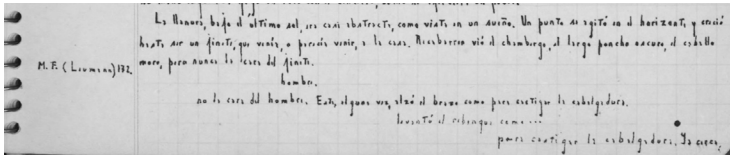 La llanura, bajo el último sol, era casi abstracta, como vista en un sueño. Un punto se agitó en el horizonte y creció
hasta ser un jinete, que venía, o parecía venir, a la casa. Recabarren vió el chambergo, el largo poncho oscuro, el caballo
M.F. (Leumann) 132. moro, pero nunca la cara del jinete.
hombre.
no la cara del hombre. Este, alguna vez, alzó el brazo como para castigar la cabalgadura.
levantó el rebenque como ...
para castigar la cabalgadura. Ya cerca,